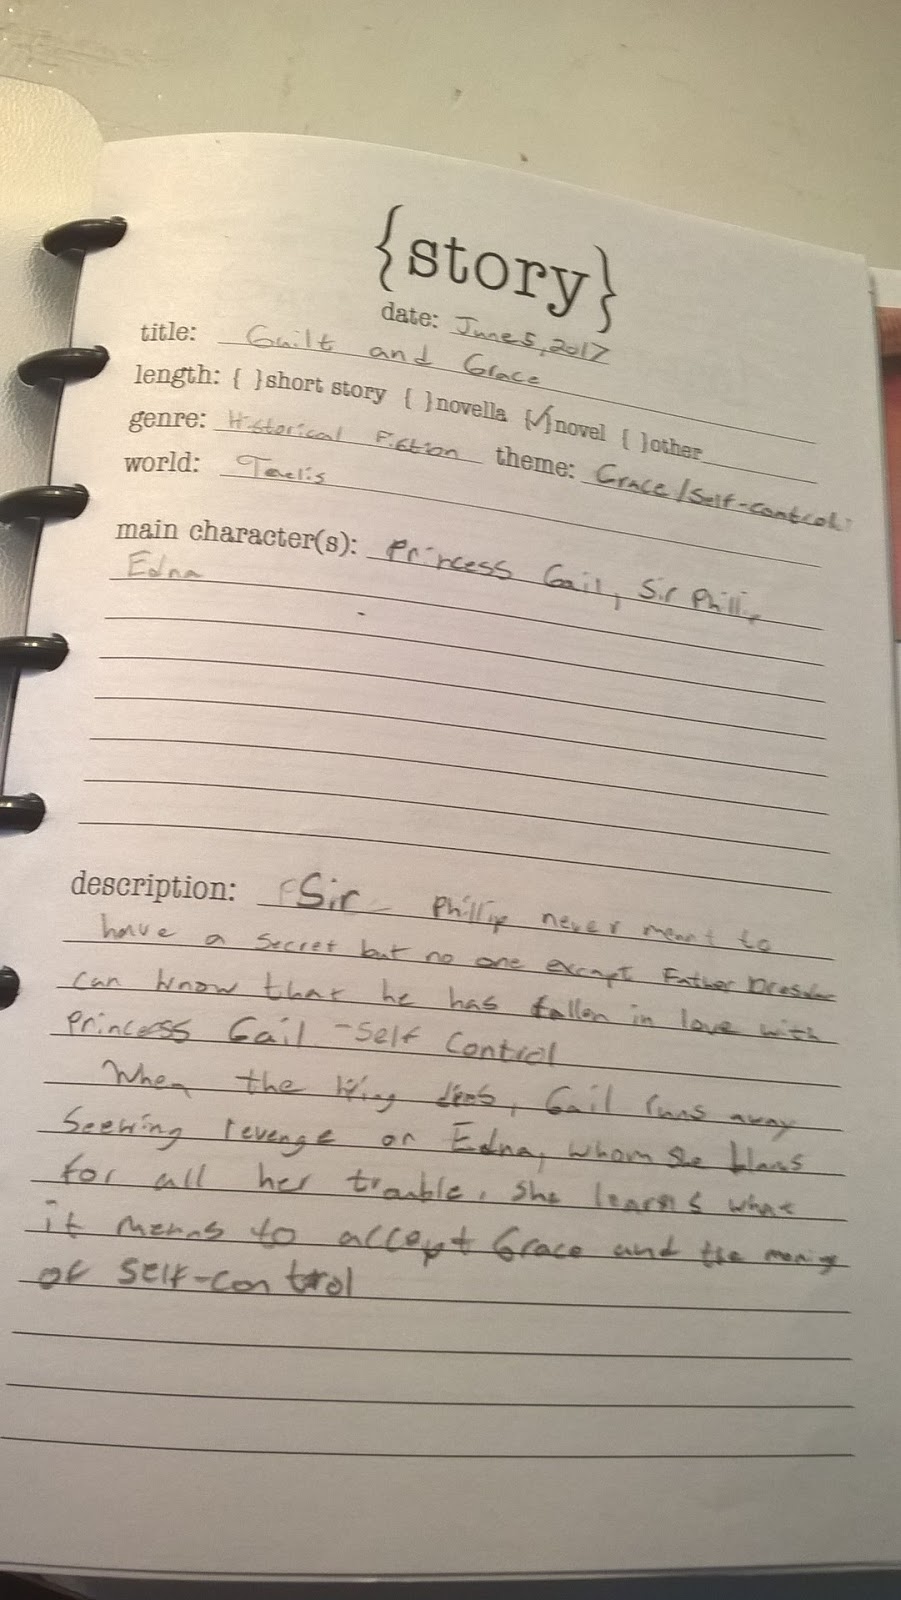 {story}
date: June 5, 2017
title: Guilt and Grace
length: { }short story { }novella {✓}novel { }other
genre: Historical Fiction theme: Grace/Self-control
world:
main character(s): Princess Gail, Sir Phillip
Edna
description: Sir Phillip never meant to
have a secret but no one except Father
can know that he has fallen in love with
Princess Gail - Self Control
When the King dies, Gail runs away
Seeking revenge on Edna, whom she
for all her trouble. She learns what
it means to accept Grace and the
of Self-control